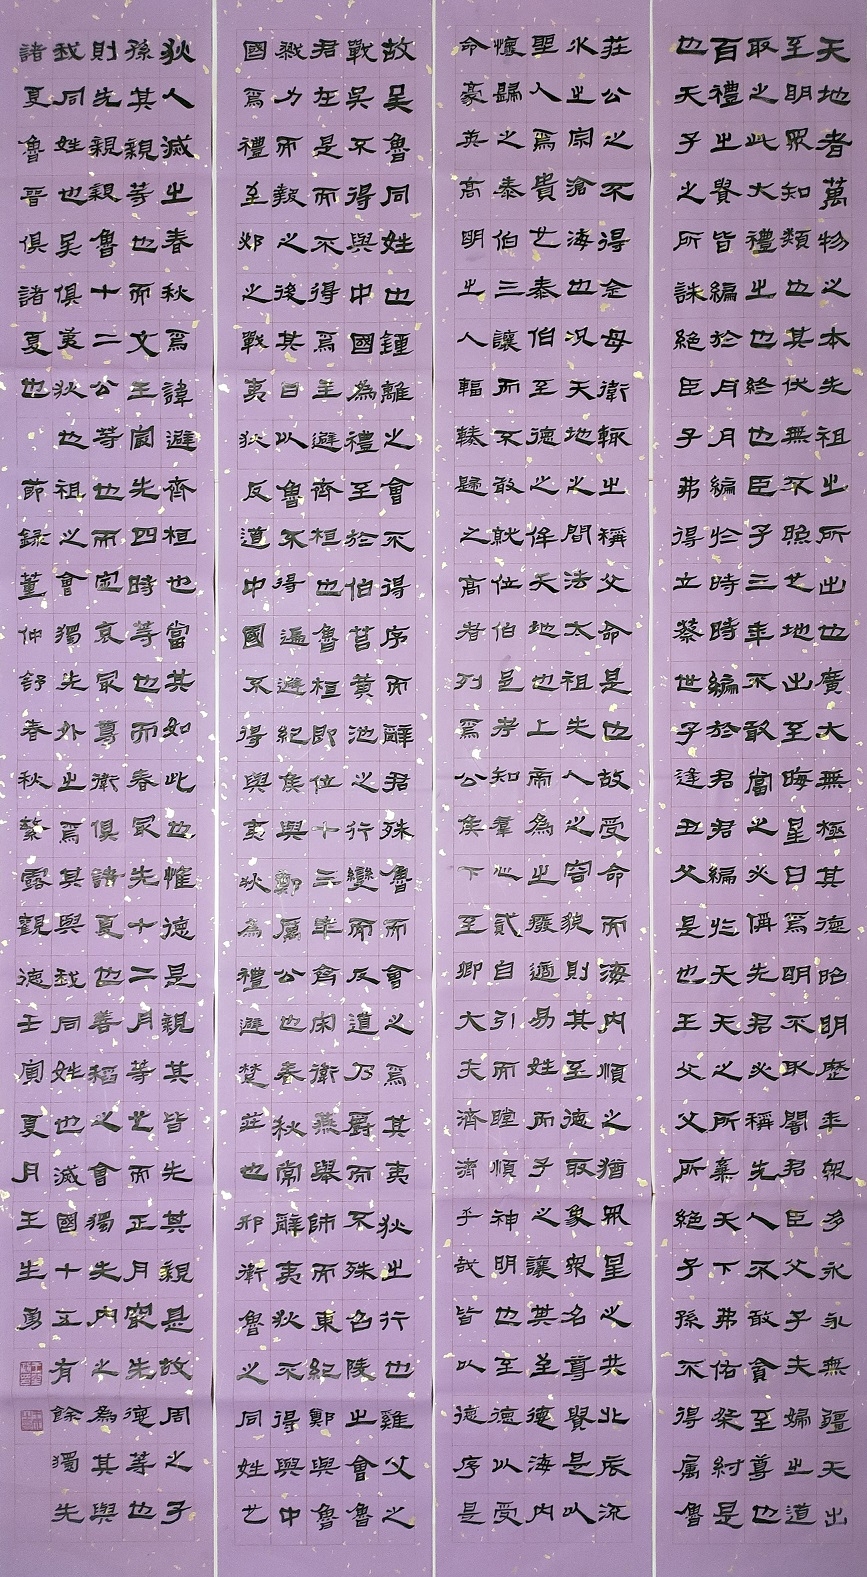 天地者萬物之本先祖之所出也廣大無極其德昭明歷年衆多永永無疆天出
至明眾知類也其伏無不炤也地出至晦星日為明不取闇君臣父子夫婦之道
取之此大禮之也終也臣子三年不敢當之必偁先君必稱先人不敢貪至尊也
百禮之貴皆編於月月編於時時編於君君編於天天之所棄天下弗佑桀紂是
也天子之所誅絕臣子弗得立蔡世子逢丑父是也王父父所絕子孫不得屬魯
莊公之不得念母衛輒之稱父命是也故受命而海內順之猶眾星之共北辰流
水之宗滄海也況天地之間法太祖先人之容貌則其至德取象衆名尊貴是以
聖人為貴也泰伯至德之侔天地也上帝為之廢適易姓而子之讓其至德海內
懷歸之泰伯三讓而不敢就位伯邑考知羣心貳自引而瞠順神明也至德以受
命豪英高明之人輻輳歸之高者列為公侯下至卿大夫濟濟乎哉皆以德序是
故吳魯同姓也鍾離之會不得序而辭君殊魯而會之為其夷狄之行也雞父之
戰吳不得與中國為禮至於伯莒黃池之行變而反道乃爵而不殊召陵之會魯
君在是而不得為主避齊桓也魯桓即位十三年齊宋衛燕舉師而東紀鄭與魯
戮力而報之後其日以魯不得遍避紀侯與鄭厲公也春秋常辭夷狄不得與中
國為禮至邲之戰夷狄反道中國不得與夷狄為禮避楚莊也邢衛魯之同姓也
狄人滅之春秋為諱避齊桓也當其如此也惟德是親其皆先其親是故周之子
孫其親等也而文王最先四時等也而春最先十二月等也而正月最先德等也
則先親親魯十二公等也而定哀最尊衛俱諸夏也善稻之會獨先內之為其與
我同姓也吳俱夷狄也祖之會獨先外之為其與我同姓也滅國十五有餘獨先
諸夏魯晉俱諸夏也 節錄董仲舒春秋繁露觀德壬寅夏月王生勇